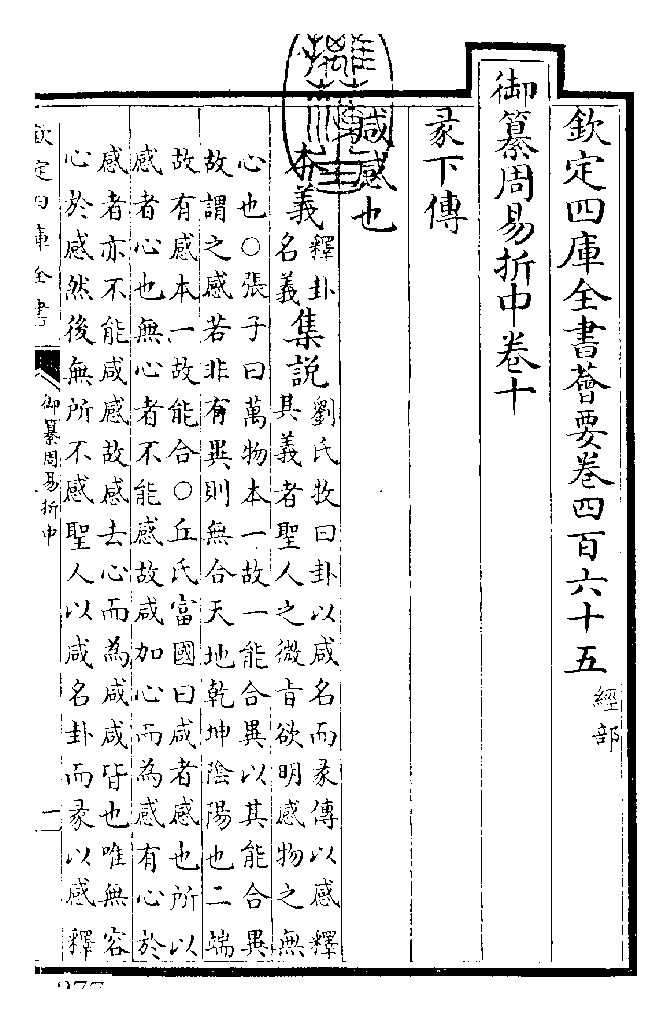 欽定四庫全書薈要卷四百六十五
經部
御纂周易折中卷十
彖下傳
咸感也
本義
釋卦
名義
集說
劉氏牧曰卦以咸名而彖傳以感釋
其義者聖人之微旨欲明感物之無
心也○張子曰萬物本一故一能合異以其能合異
故謂之感若非有異則無合天地乾坤陰陽也二端
故有感本一故能合○丘氏富國曰咸者感也所以
感者心也無心者不能感故咸加心而為感有心於
感者亦不能咸感故感去心而為咸咸皆也唯無容
心於感然後無所不感聖人以咸名卦而彖以感釋
欽定四庫全書
御纂周易折中